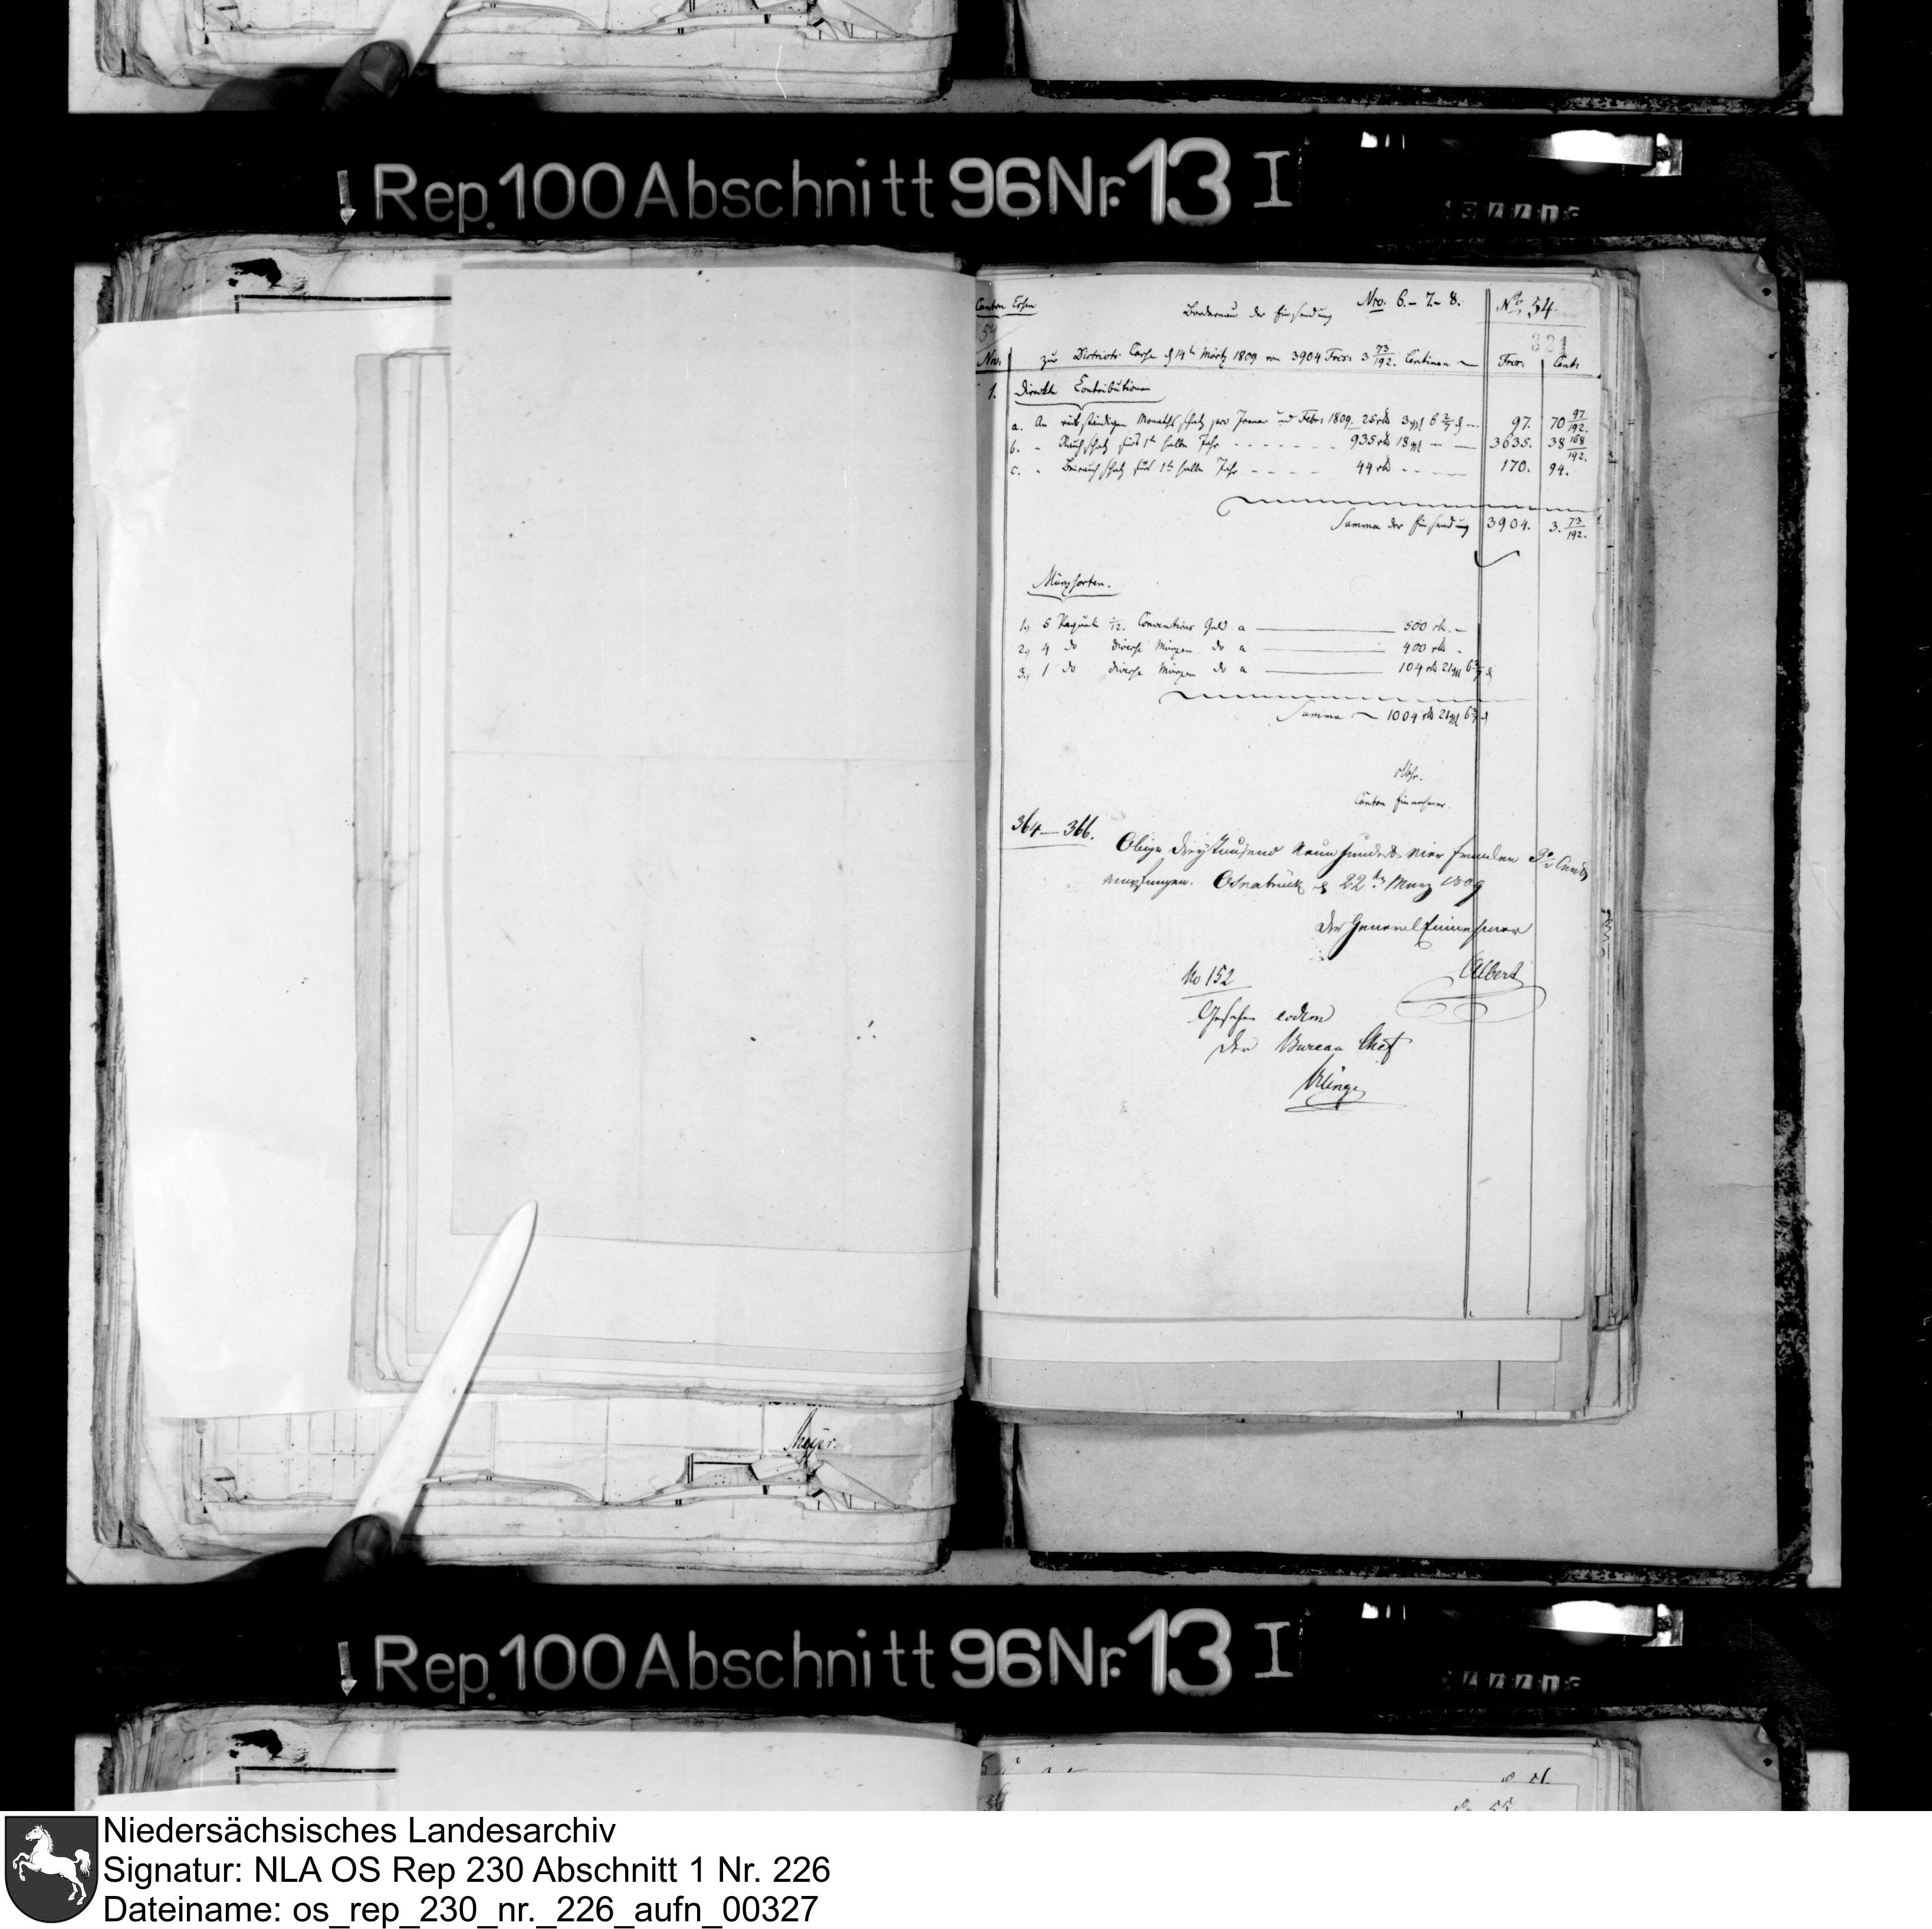 Rep. 100 Abschnitt 96 Nr. 13 I
Canton Essen
Bordereau der Einsendung Nro. 6.- 7- 8.
No. 54.
54
321
Nro.
zur Districts Casse d 14ten Märtz 1809 von 3904 Frcs: 3 73/192. Centimen
Frcs. Cent:
1. Direkte Contributionen
a. An rückständigen Monathsschatz pro Januar und Febr: 1809. 25 rth 3 ggl 6 2/7 d 97. 70 97/192.
b. " Rauchschatz fürs 1te halbe Jahr 935 rth 18 ggl 3635. 38 168/192
c. " Beirauchschatz fürs 1te halbe Jahr 44 rth 170. 94.
Summa der Einsendung 3904. 3. 73/192.
Münzsorten.
1., 5 Paquete 1/12. Conventions Geld a 500 rth. -
2., 4 do diverse Münzen do a 400 rth -
3., 1 do diverse Münzen do a 104 rth 21 ggl 6 2/7 d
Summa 1004 rth 21 ggl 6 2/7 d
Canton Einnehmer.
364 - 366.
Obige Dreytausend Neunhundert Vier Franken
empfangen. Osnabrück d 22ten Merz 1809
Der General Einnehmer
Albert
No 152
Gesehen eodem
Der Bureau Chef
Klinge
Meyer.
Rep. 100 Abschnitt 96 Nr. 13 I
Niedersächsisches Landesarchiv
Signatur: NLA OS Rep 230 Abschnitt 1 Nr. 226
Dateiname: os_rep_230_nr._226_aufn_00327